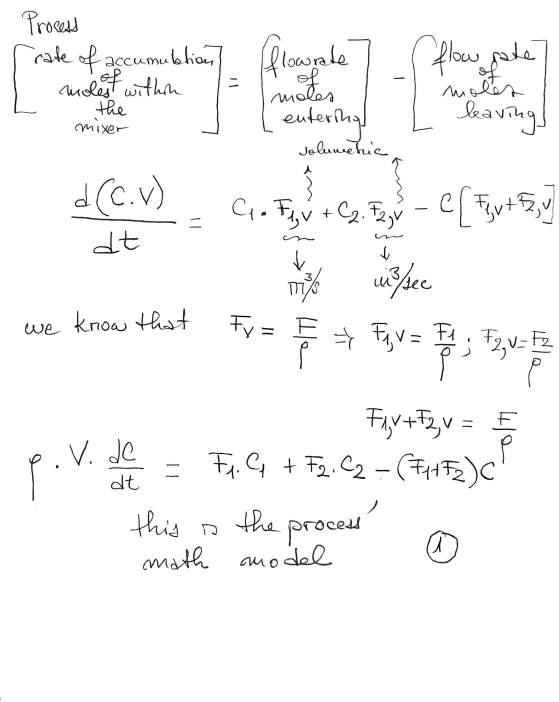 Process
[rate of accumulation of moles within the mixer] = [flowrate of moles entering] - [flow rate of moles leaving]
volumetric
d(C.V)/dt = C1 . F1,v + C2 . F2,v - C[F1,v+F2,v]
m³/s m³/sec
we know that Fv = F/ρ ⇒ F1,v = F1/ρ ; F2,v = F2/ρ
F1,v+F2,v = F/ρ
ρ . V. dC/dt = F1. C1 + F2. C2 - (F1+F2)C
this is the process
math model ①